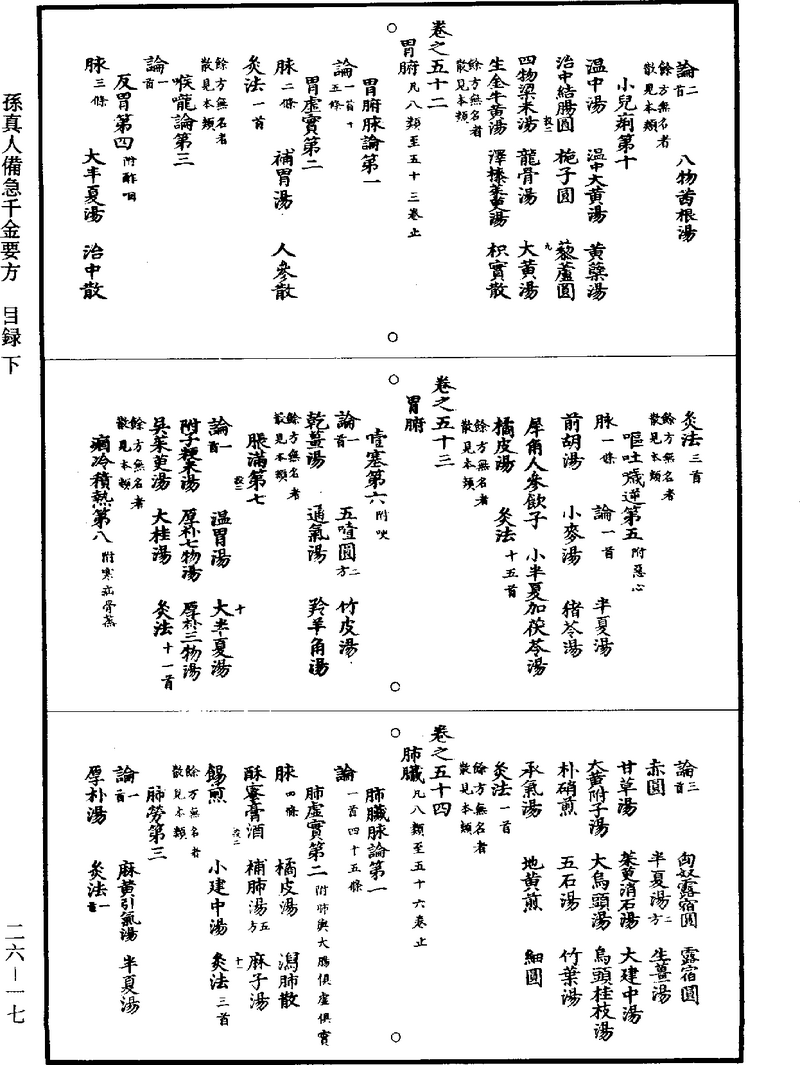 論二首　八物茜根湯
餘方無名者
散見本類
小兒痢第十
温中湯　温中大黃湯　黃蘗湯
治中結腸圓　梔子圓　藜蘆圓
四物粱米湯　龍骨湯　大黃湯
生金牛黃湯　澤漆茱萸湯　枳實散
餘方無名者
散見本類
胃腑凡八類至五十三卷止
卷之五十二
胃腑脉論第一
論一首十五條
胃虛實第二
脉二條　補胃湯　人參散
灸法一首
喉嚨論第三
餘方無名者
散見本類
論一首
反胃第四附酢咽
脉三條　大半夏湯　治中散
灸法三首
餘方無名者
散見本類
嘔吐噦逆第五附惡心
脉一條　論一首　半夏湯
前胡湯　小麥湯　猪苓湯
犀角人參飲子　小半夏加茯苓湯
橘皮湯　灸法十五首
餘方無名者
散見本類
卷之五十三
胃腑
噎塞第六附哽
論一首　五噎圓二方　竹皮湯
乾薑湯　通氣湯　羚羊角湯
餘方無名者
散見本類
脹滿第七
論一首　温胃湯　大半夏湯
附子粳米湯　厚朴七物湯　厚朴三物湯
吳茱萸湯　大桂湯　灸法十一首
餘方無名者
散見本類
痼冷積熱第八附寒疝骨蒸
論三首　匈奴露宿圓　露宿圓
赤圓　半夏湯二方　生薑湯
甘草湯　茱萸消石湯　大建中湯
大黃附子湯　大烏頭湯　烏頭桂枝湯
朴硝煎　五石湯　竹葉湯
承氣湯　地黃煎　細圓
灸法一首
餘方無名者
散見本類
卷之五十四
肺臟凡八類至五十六卷止
肺臟脉論第一
論一首四十五條
肺虛實第二附肺與大腸俱虛俱實
脉四條　橘皮湯　瀉肺散
酥蜜膏酒　補肺湯五方　麻子湯
餳煎　小建中湯　灸法三首
餘方無名者
散見本類
肺勞第三
論一首　麻黃引氣湯　半夏湯
厚朴湯　灸法一首
孫真人備急千金要方　目録下
二六—一七